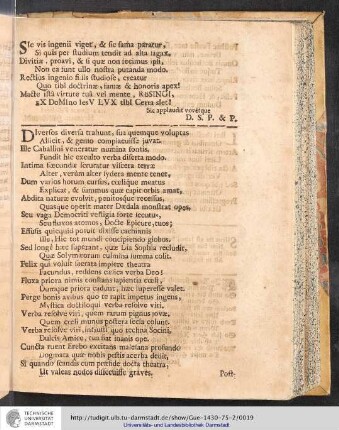 Sic vis ingenii viget, & sic fama paratur,
Si quis per studium tendit ad alta sagax.
Divitiæ, proavi, & si quæ non fecimus ipsi,
Non ea sunt ullo nostra putanda modo.
Rectius ingenio sibi studiose, creatur
Quo tibi doctrinæ, famæ & honoris apex!
Macte ista virtute tuâ vel mente, RUSINGI,
aX DoMIno IesV LVX tIbI Certa siet!
Sic applaudit vovétque
D. S. P. & P.
DIversos diversa trahunt, sua quemque voluptas
Allicit, & genio complacuisse juvat.
Ille Caballini veneratur numina fontis,
Fundit hic excelto verba diserta modo.
Intima secundæ scrutatur viscera terræ
Alter, verùm alter sydera mente tenet,
Dum varios horum cursus, cœlique meatus
Explicat, & summus quæ capit orbis amat,
Abdita naturæ evolvit, penitosque recessus,
Quasque operit mater Dædala monstrat opes.
Seu vaga Democriti vestigia forte secutus,
Seu forsan atomos, Docte Epicure, tuos;
Effusis quicquid potuit dixisse
Ille, sic tot mundi concipiendo globos.
Sed longè hæc superant, quæ Dia Sophia recludit,
Quæ Solymorum culmina summa colit.
Felix qui voluit sacrata impiere theatra
Facundus, reddens cælica verba Deo!
Fluxa priora nimis constans sapientia cœli,
Quæque priora cadunt; hæc superesse valet.
Perge bonis avibus quo te rapit impetus ingens,
Mystica doctiloqui verba resolve viri.
Verba resolve viri, quem rarum pignus jovæ,
Quem cœli munus postera secla colunt.
Verba resolve viri, infausti quo techna Socini,
Dulcis Amice, tua fiat inanis ope.
Cuncta ruent Erebo excitans malesana profundo
Dogmata quæ nobis pestis acerba dedit,
Si quando scandis cum pernide docta theatra,
Ut valeas nodos discutiisse graves.
Post-
TECHNISCHE UNIVERSITÄT DARMSTADT
http://tudigit.ulb.tu-darmstadt.de/show/Gue-1430-75-2/0019
Universitäts- und Landesbibliothek Darmstadt